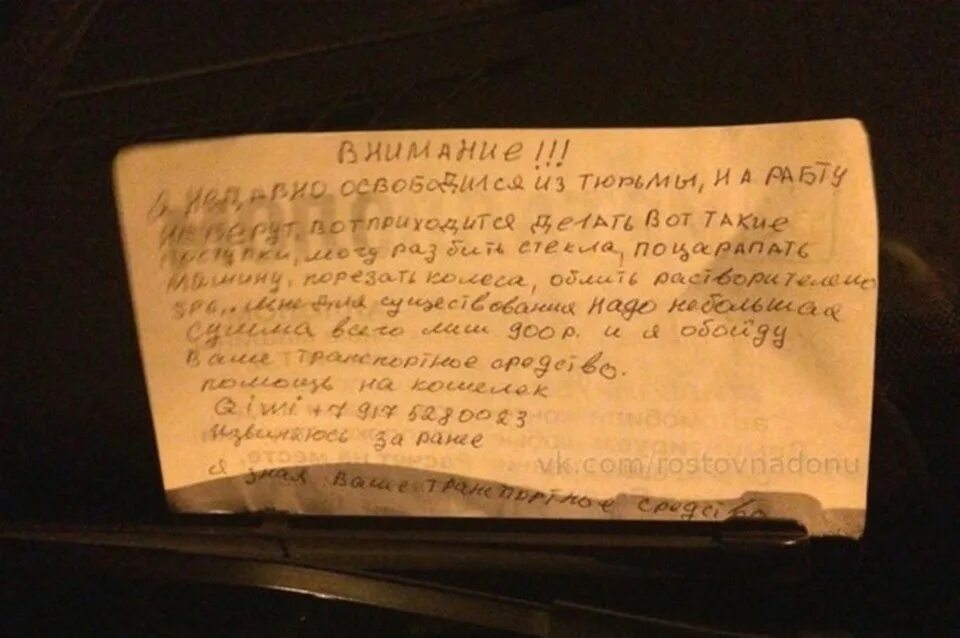 ВНИМАНИЕ!!!
ОСВОБОДИЛСЯ ИЗ ТЮРЬМЫ, НА РАБТУ
НЕ БЕРУТ, ВОТ ПРИХОДИТСЯ ДЕЛАТЬ ВОТ ТАКИЕ
поступки, могу разбить стекла, поцарапать
машину, порезать колеса, облить
мне для существования надо небольшая
сумма всего лиш 900 р. и я обойду
Ваше транспортное средство.
помощь на кошелек
Qiwi +7 917 5280023
Извиняюсь за ранее
vk.com/rostovnadonu
я знаю Ваше транспортное средство